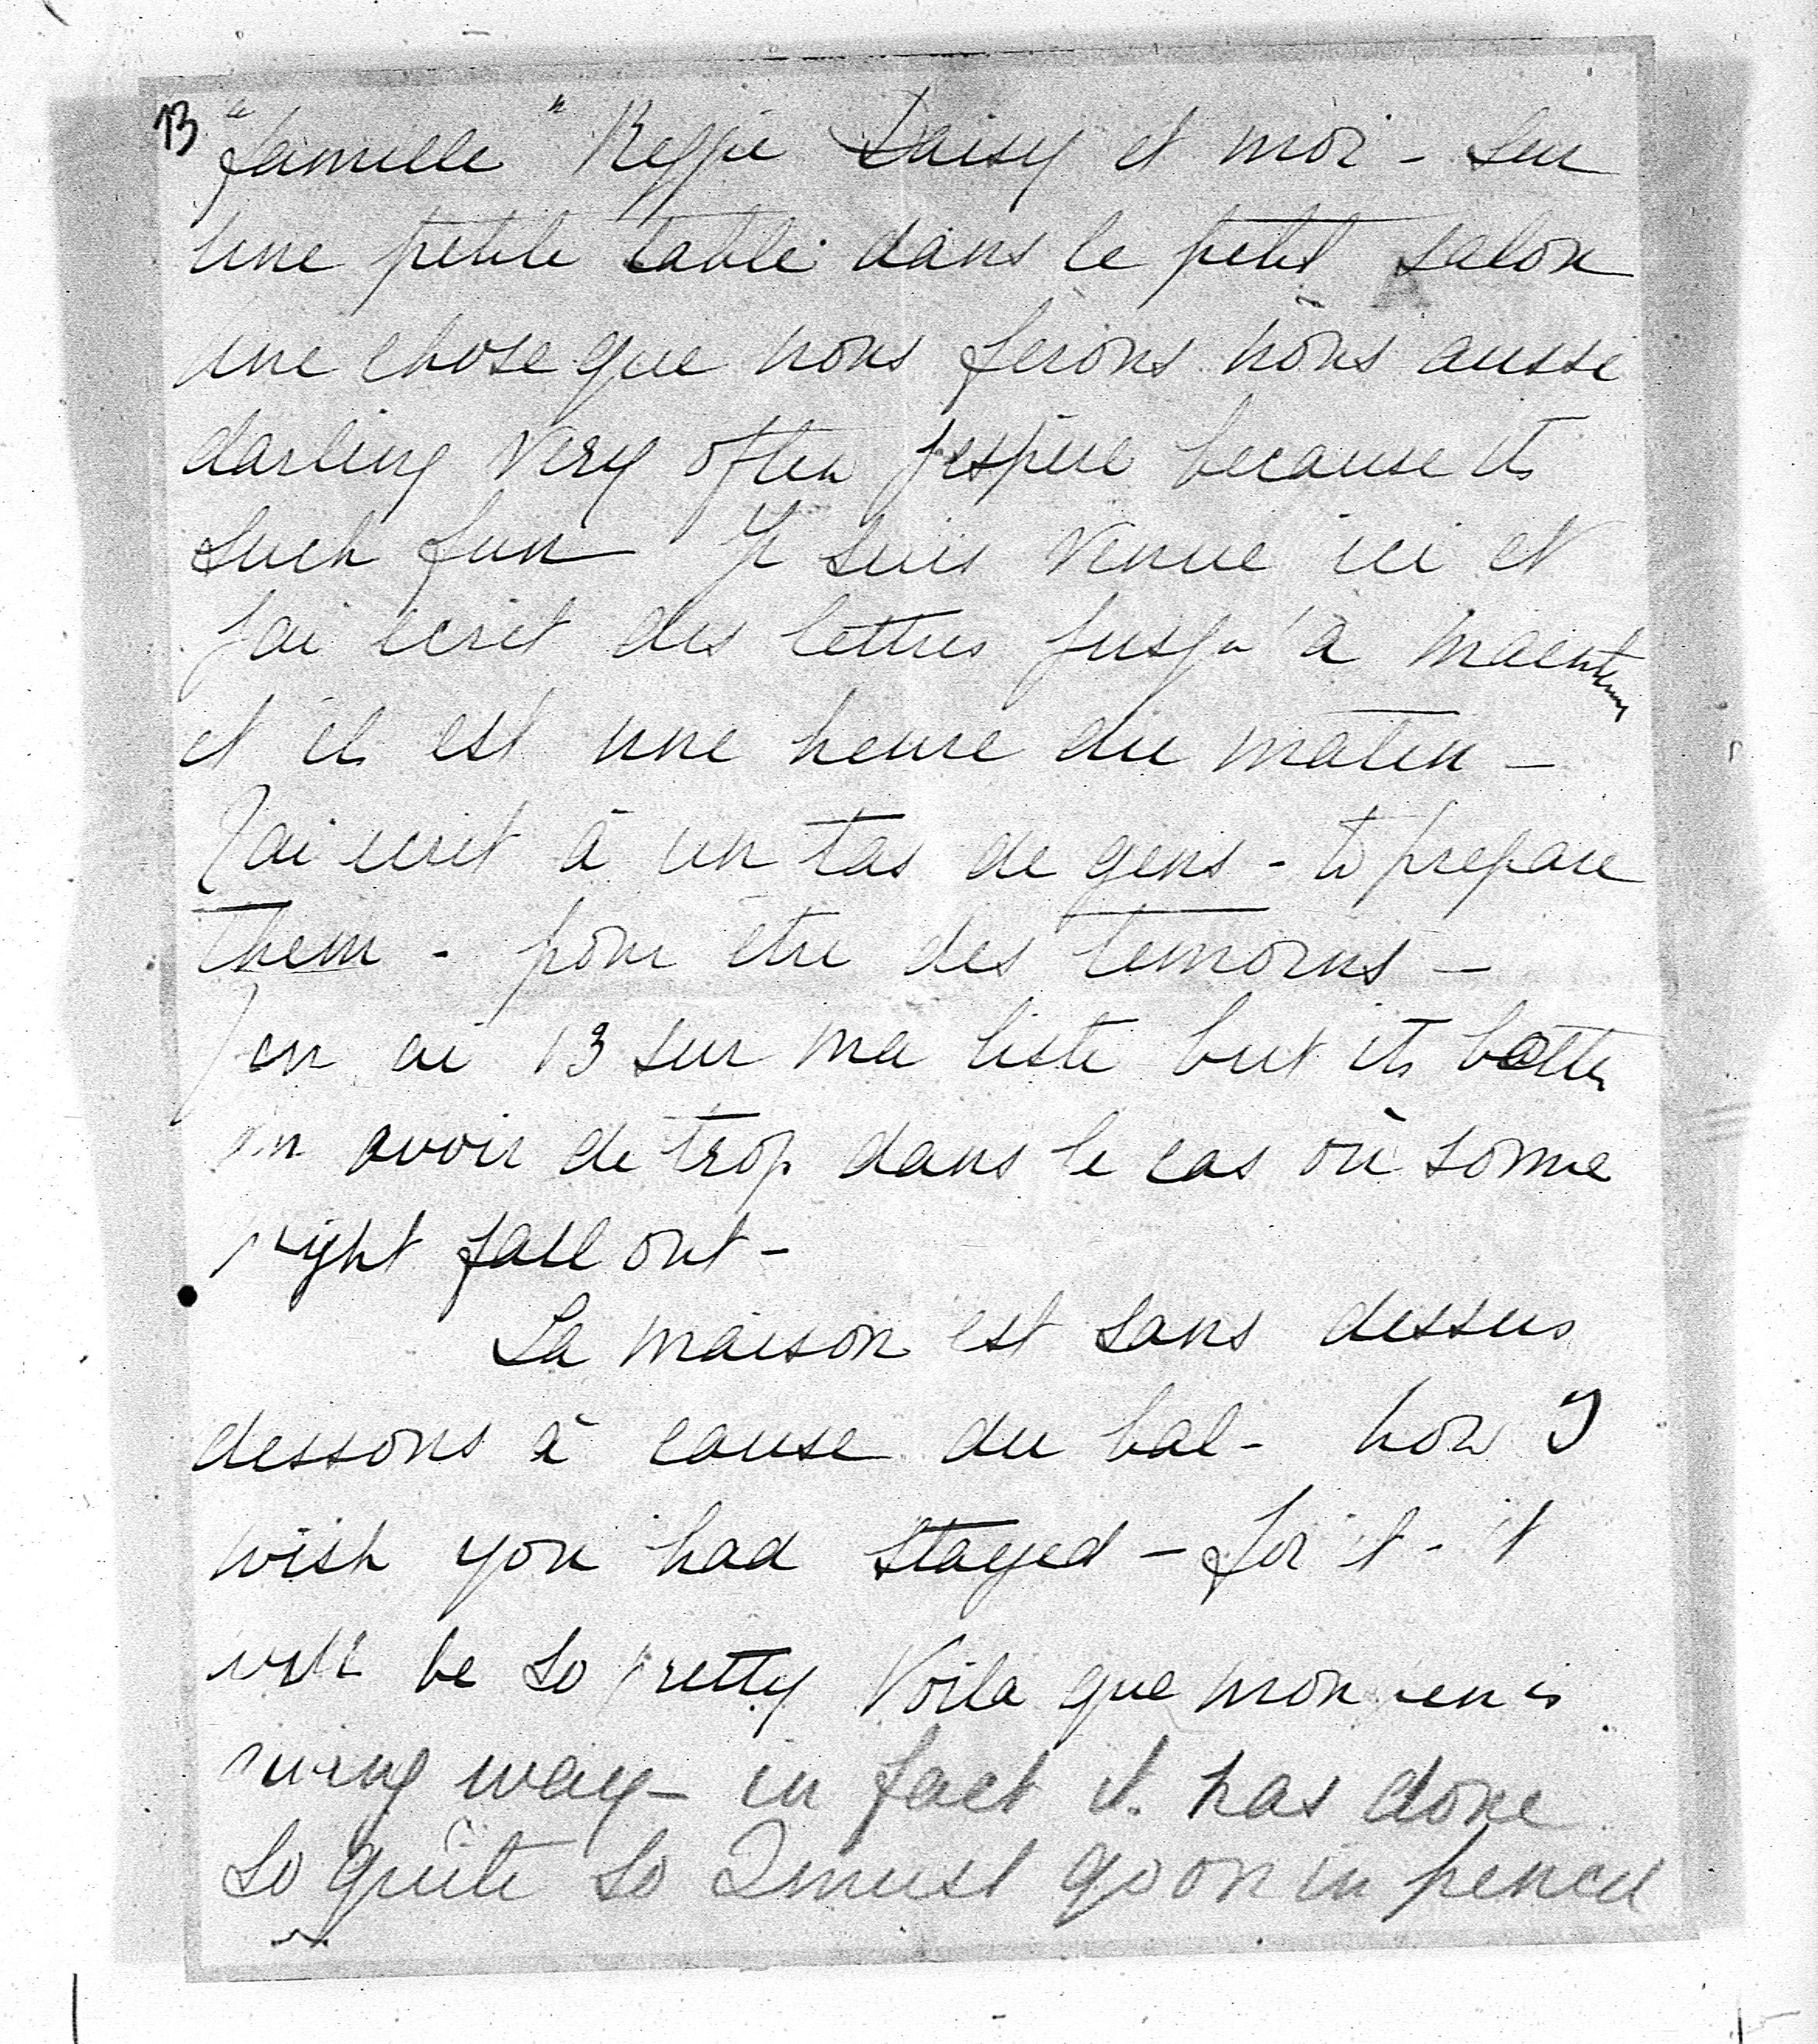 13 "famille" Reggie Daisy et moi - sur
une petite table dans le petit salon
une chose que nous ferons nous aussi
darling very often j'espère because its
such fun Je suis venue ici et
j'ai ecrit des lettres jusqu'à maintenant
et il est une heure du matin -
J'ai ecrit à un tas de gens - to prepare
them - pour être des temoins -
J'en ai 13 sur ma liste but its better
en avoir de trop dans le cas où some
might fall out -
La maison est sans dessus
dessous à cause du bal - how I
wish you had stayed - for it - it
will be so pretty Voila que mon pen is
giving way - in fact it has done
so quite so I must go on in pencil